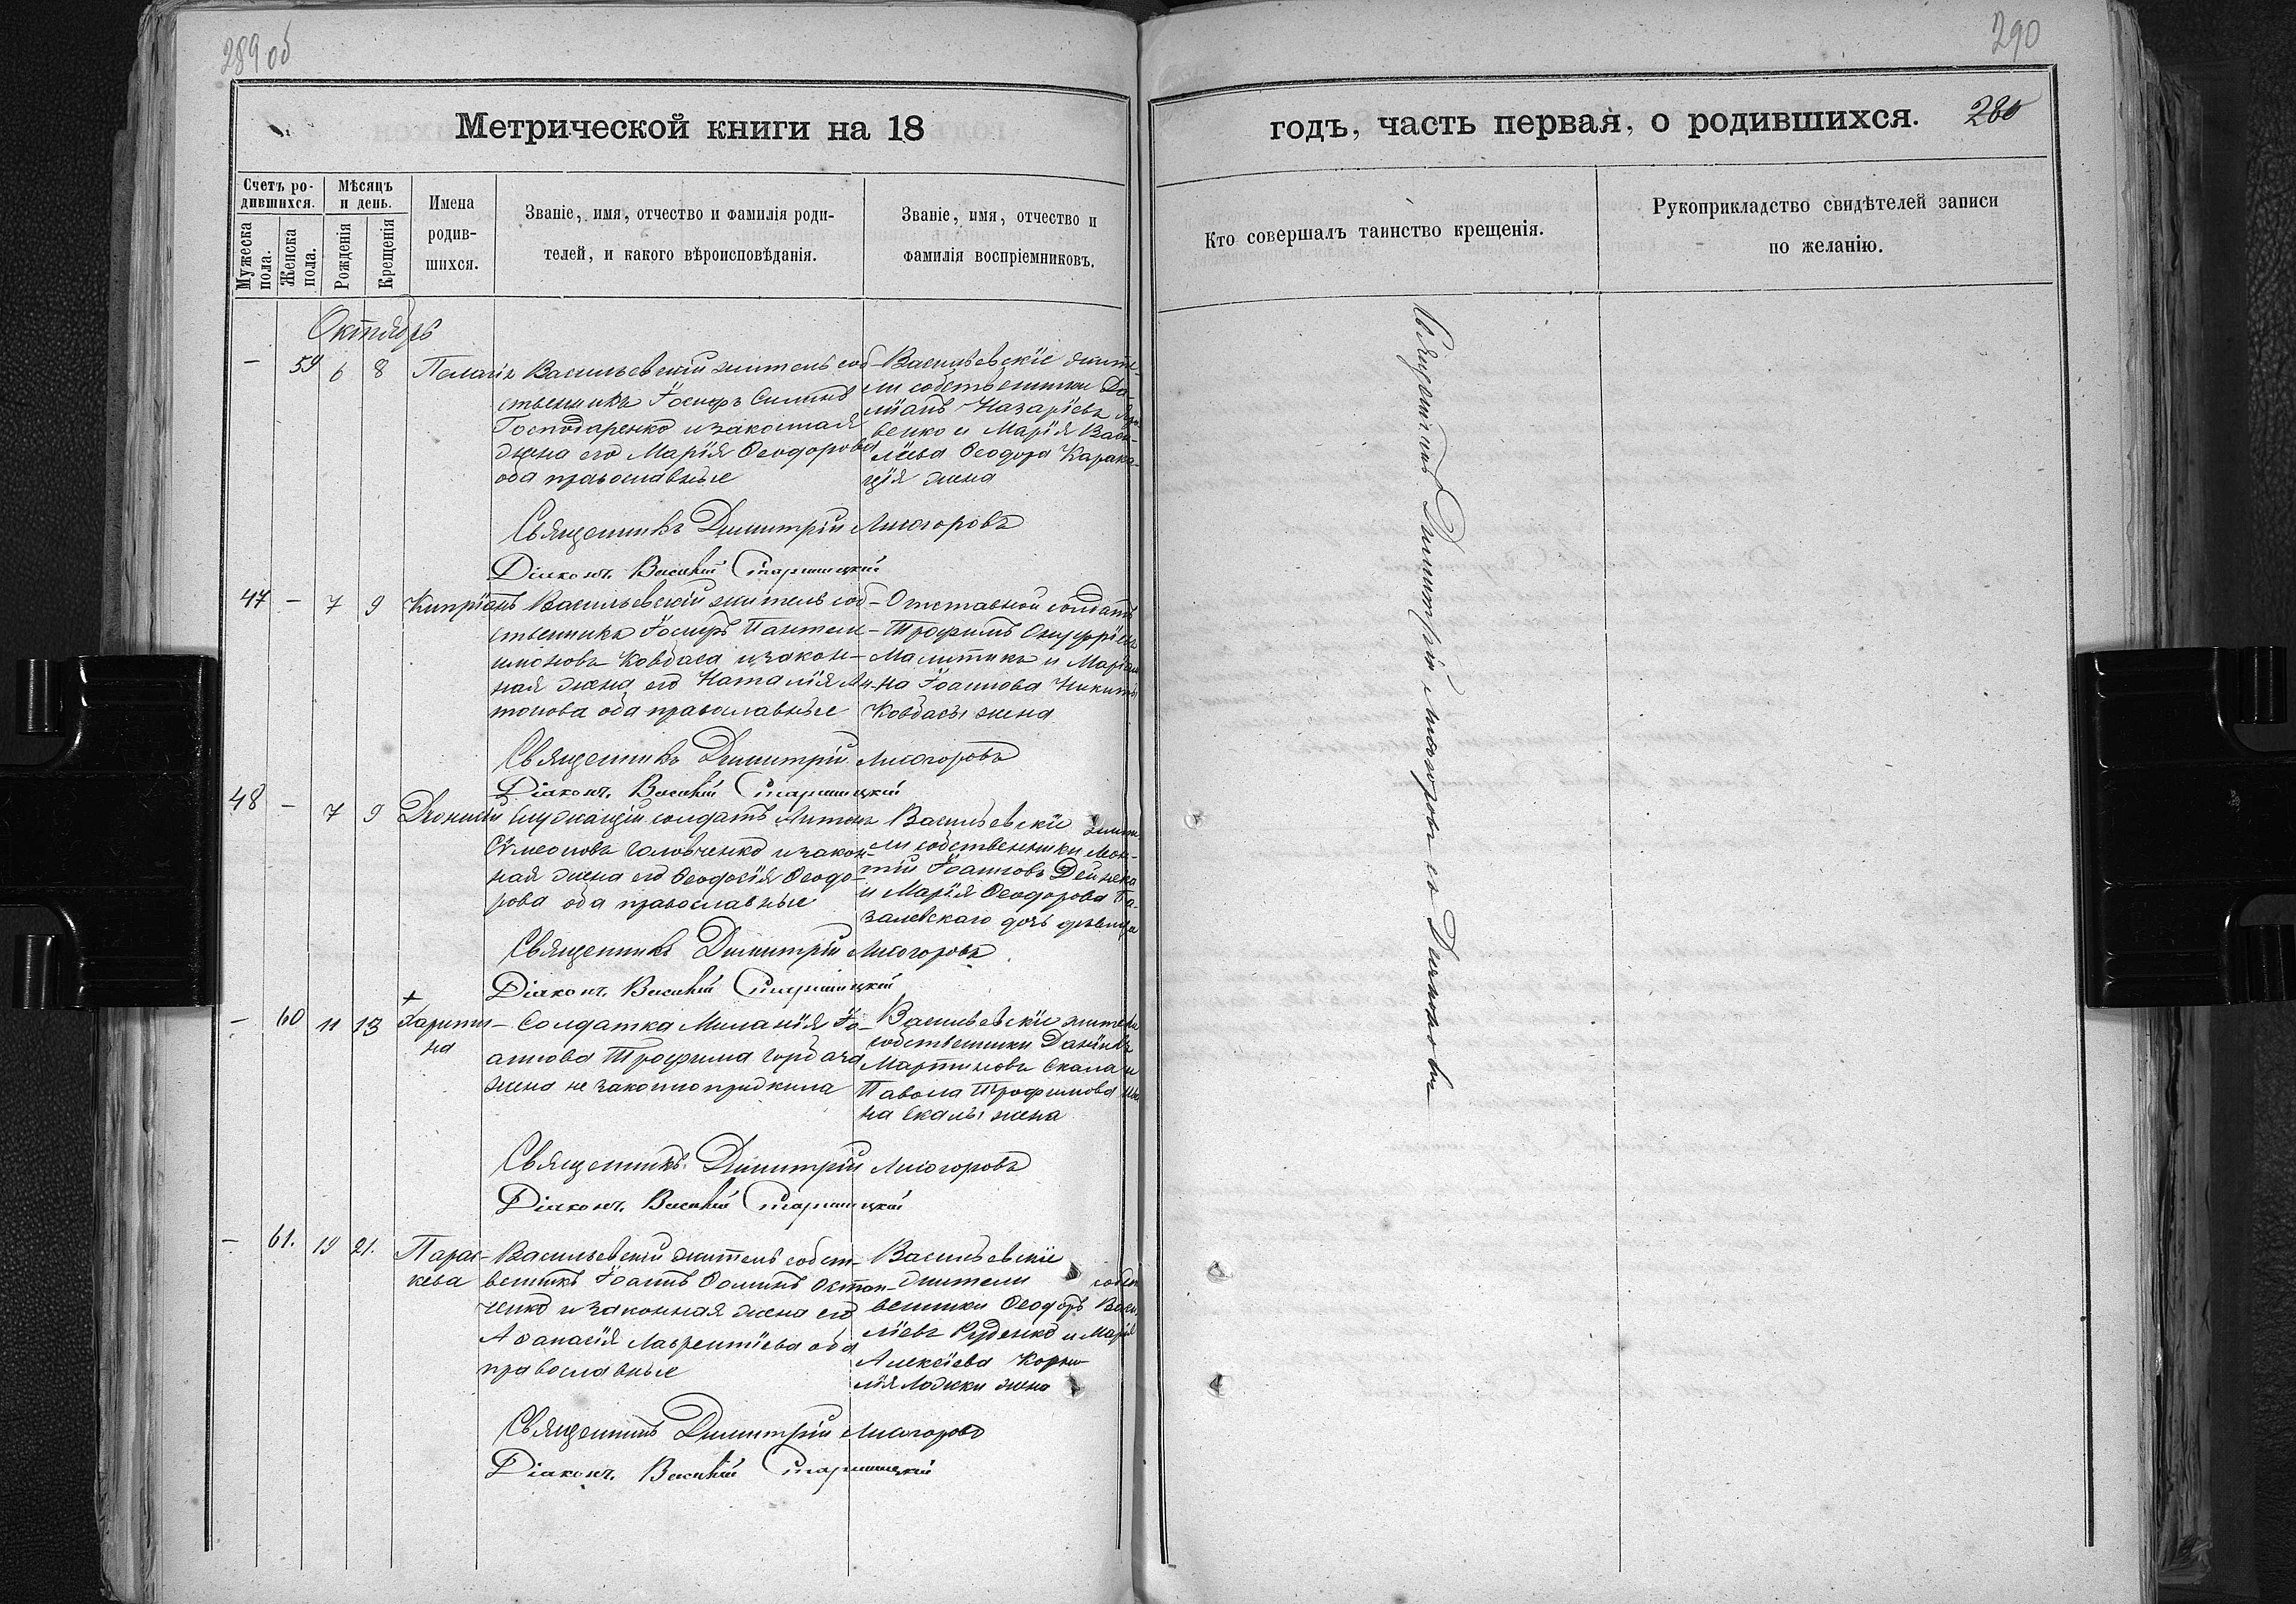 289 об
290
Метрической книги на 18
годъ, часть первая, о родившихся.
280
Счетъ ро-
дившихся.
Мужеска
пола.
Женска
пола.
Мѣсяцъ
и день.
Рожденія
Крещенія
Имена
родив-
шихся.
Званіе, имя, отчество и фамилія роди-
телей, и какого вѣроисповѣданія.
Званіе, имя, отчество и
фамилія воспріемниковъ.
Кто совершалъ таинство крещенія.
Рукоприкладство свидѣтелей записи
по желанію.
Октябрь
— 59 6 8 Пелагія
Васильевскій житель соб-
ственникъ Іосифъ Силинъ
Господаренко и законная
жена его Марія Ѳеодорова
оба православные
Васильевскіе жите-
ли собственники Да-
міанъ Назаріевъ
венко и Марія Васи-
ліева Ѳеодора Карака-
ція жена
Священникъ Димитрій Лисогоровъ
Діаконъ Василій Старицкій
47 — 7 9 Кипріанъ
Васильевскій житель соб-
ственникъ Іосифъ Пантеле-
имоновъ Ковбаса и закон-
ная жена его Наталія Ан-
тонова оба православные
Отставной солдатъ
Трофимъ Онуфріевъ
Малитикъ и Маріам-
на Іоаннова Никиты
Ковбасы жена
Священникъ Димитрій Лисогоровъ
Діаконъ Василій Старицкій
48 — 7 9 Діонисій
Служащій солдатъ Антонъ
Сѵмеоновъ Головченко и закон-
ная жена его Ѳеодосія Ѳеодо-
рова оба православные
Васильевскіе жите
ли собственники Леон-
тій Іоанновъ Дейнека
и Марія Ѳеодорова Ба-
залевскаго дочь дѣвица
Священникъ Димитрій Лисогоровъ
Діаконъ Василій Старицкій
— 60 11 13
+
Харити-
на
Солдатка Меланія Іо-
аннова Трофима Горбача
жена не законно прижила
Васильевскіе жители
собственники Даніилъ
Мартиновъ Скала и
Павола Трофимова
на Скалы жена
Священникъ Димитрій Лисогоровъ
Діаконъ Василій Старицкій
— 61. 19 21.
Парас-
кева
Васильевскій житель собст-
венникъ Іоаннъ Ѳоминъ Остап-
ченко и законная жена его
Аѳанасія Лаврентіева оба
православные
Васильевскіе
жители собст
венники Ѳеодоръ Васи
ліевъ Руденко и Марія
Алексіева Корни-
лія Ложки жена
Священникъ Димитрій Лисогоровъ
Діаконъ Василій Старицкій
Священникъ Димитрій Лисогоровъ съ Діакономъ